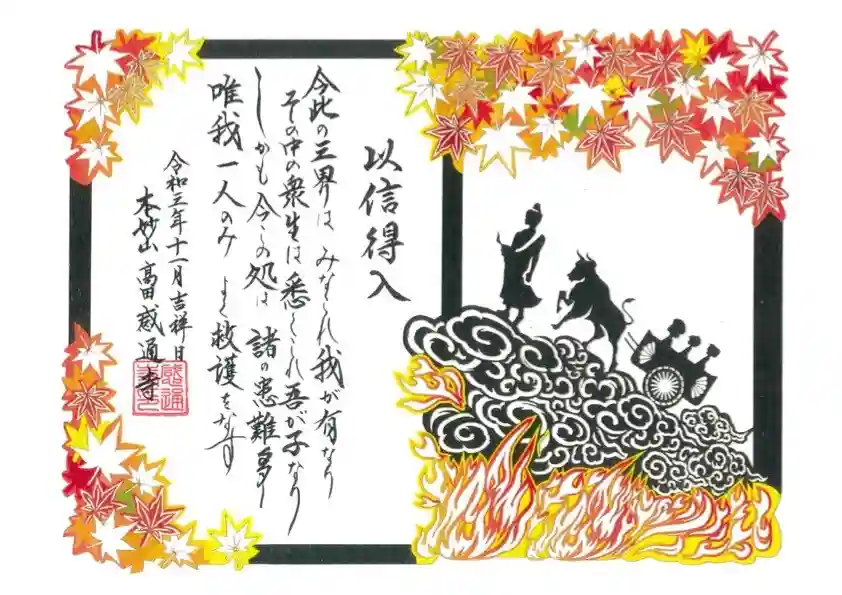 以信得入
今此の三界は みなこれ我が有なり
その中の衆生は悉くこれ吾が子なり
しかも今この処は 諸の患難多し
唯我一人のみ よく救護をなす
令和三年十一月吉祥日
本妙山 高田感通寺